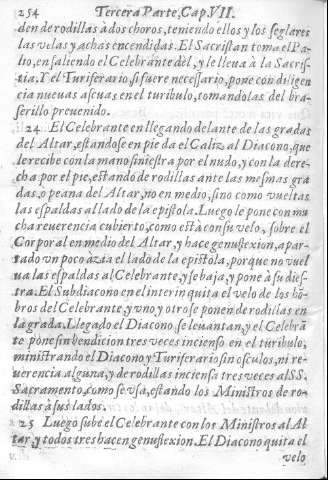 254 Tercera Parte, Cap. VII.
den de rodillas à dos choros, teniendo ellos y los seglares
las velas y achas encendidas. El Sacristan toma el Pa-
lio, en saliendo el Celebrante dèl, y le lleva à la Sacris-
tia. Y el Turiferario, si fuere necessario, pone con diligen
cia nuevas ascuas en el turibulo, tomandolas del bra-
serillo prevenido.
24 El Celebrante en llegando delante de las gradas
del Altar, estandose en pie da el Caliz al Diacono, que
le recibe con la mano siniestra por el nudo, y con la dere-
cha por el pie, estando de rodillas ante las mesmas gra
das, o peana del Altar, no en medio, sino como vueltas
las espaldas al lado de la epistola. Luego le pone con mu
cha reverencia cubierto, como està con su velo, sobre el
Corporal en medio del Altar, y hace genuflexion, apar-
tado un poco àzia el lado de la epistola, porque no vuel
va las espaldas al Celebrante, y se baja, y pone à su dies-
tra. El Subdiacono en el interin quita el velo de los hõ-
bros del Celebrante, y uno y otro se ponen de rodillas en
la grada. Llegado el Diacono, se levantan, y el Celebrã
te pone sin bendicion tres veces incienso en el turibulo,
ministrando el Diacono y Turiferario sin osculos, ni re-
verencia alguna, y de rodillas inciensa tres veces al SS.
Sacramento, como se usa, estando los Ministros de ro-
dillas à sus lados.
25 Luego sube el Celebrante con los Ministros al Al
tar, y todos tres hacen genuflexion. El Diacono quita el
velo